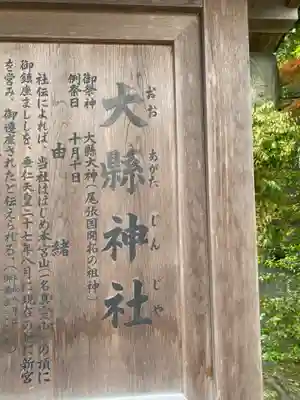 大縣神社
おおあがたじんじゃ
御祭神 大縣大神(尾張国開拓の祖神)
例祭日 十月十日
由緒
社伝によれば、当社ははじめ本宮山(一名の頂に
御鎮座ましましを、垂仁天皇二十七年八月に現在の地に新宮
を営み、御遷座されたと伝えられる。